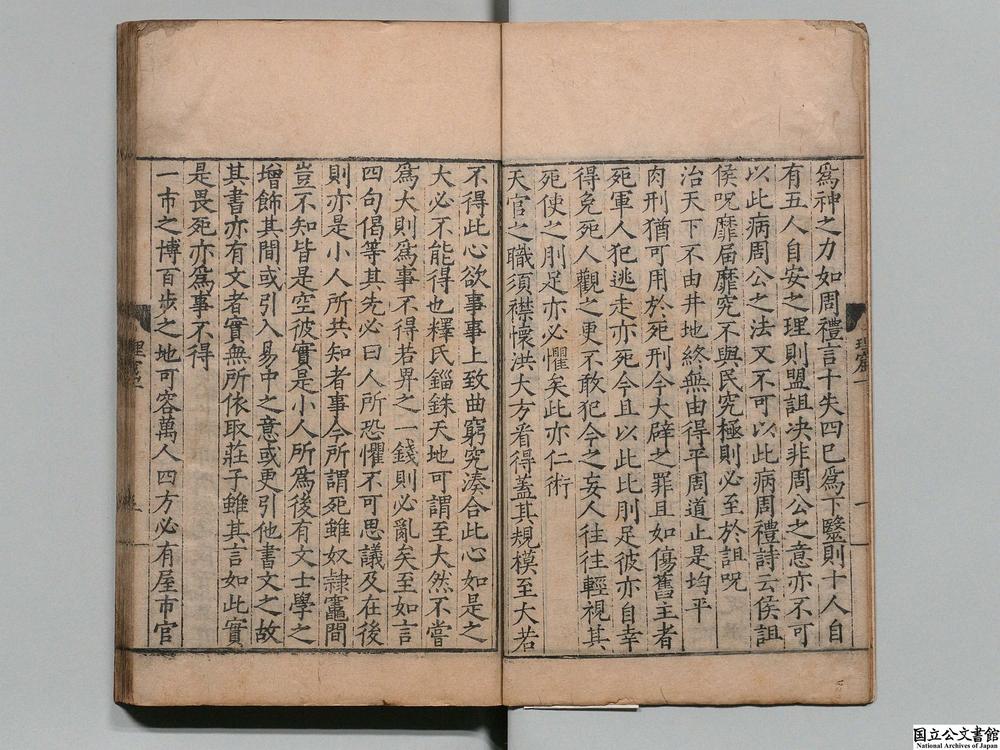 爲神之力如周禮言十失四已爲下醫則十人自
有五人自安之理則盟詛决非周公之意亦不可
以此病周公之法又不可以此病周禮詩云侯詛
侯呪靡届靡究不與民究極則必至於詛呪
治天下不由井地終無由得平周道止是均平
肉刑猶可用於死刑今大辟之罪且如傷舊主者
死軍人犯逃走亦死今且以此比刖足彼亦自幸
得免死人觀之更不敢犯今之妄人往往輕視其
死使之刖足亦必懼矣此亦仁術
天官之職須襟懷洪大方看得蓋其規模至大若
不得此心欲事事上致曲窮究湊合此心如是之
大必不能得也釋氏錙銖天地可謂至大然不嘗
爲大則爲事不得若畀之一錢則必亂矣至如言
四句偈等其先必曰人所恐懼不可思議及在後
則亦是小人所共知者事今所謂死雖奴隷竈間
豈不知皆是空彼實是小人所爲後有文士學之
增飾其間或引入易中之意或更引他書文之故
其書亦有文者實無所依取莊子雖其言如此實
是畏死亦爲事不得
一市之博百步之地可容萬人四方必有屋市官
国立公文書館
National Archives of Japan